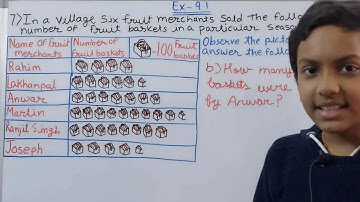 Ex-9.1
7) In a village Six fruit merchants Sold the follo
number of fruit baskets in a particular Seas
Name of fruit merchants
Number of fruit baskets
-100 fruit baskets
Observe the
answer the follo
Rahim
Lakhanpal
Anwar
Martin
Ranjit Singh
Joseph
b) How many
baskets were
by Anwar?